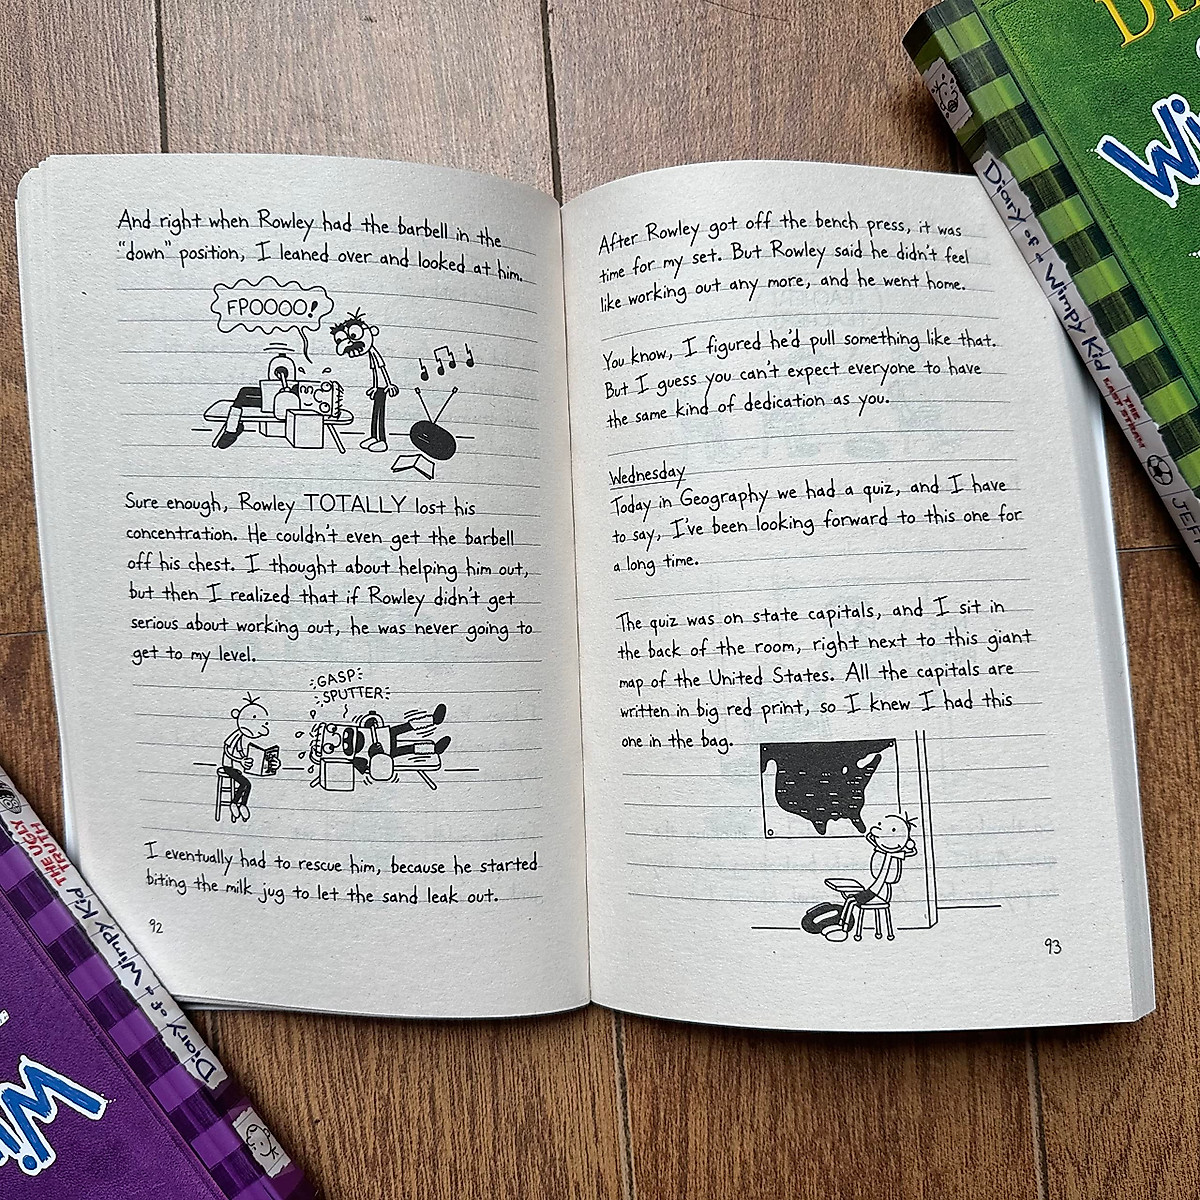 And right when Rowley had the barbell in the
"down" position, I leaned over and looked at him.
FPOOOO!
Sure enough, Rowley TOTALLY lost his
concentration. He couldn't even get the barbell
off his chest. I thought about helping him out,
but then I realized that if Rowley didn't get
serious about working out, he was never going to
get to my level.
GASP
SPUTTER
I eventually had to rescue him, because he started
biting the milk jug to let the sand leak out.
92
After Rowley got off the bench press, it was
time for my set. But Rowley said he didn't feel
like working out any more, and he went home.
You know, I figured he'd pull something like that.
But I guess you can't expect everyone to have
the same kind of dedication as you.
Wednesday
Today in Geography we had a quiz, and I have
to say, I've been looking forward to this one for
a long time.
The quiz was on state capitals, and I sit in
the back of the room, right next to this giant
map of the United States. All the capitals are
written in big red print, so I knew I had this
one in the bag.
93
Diary of a Wimpy Kid
THE LAST STRAW
JEFF
Wi
Diary of a Wimpy Kid
THE UGLY TRUTH
Wi